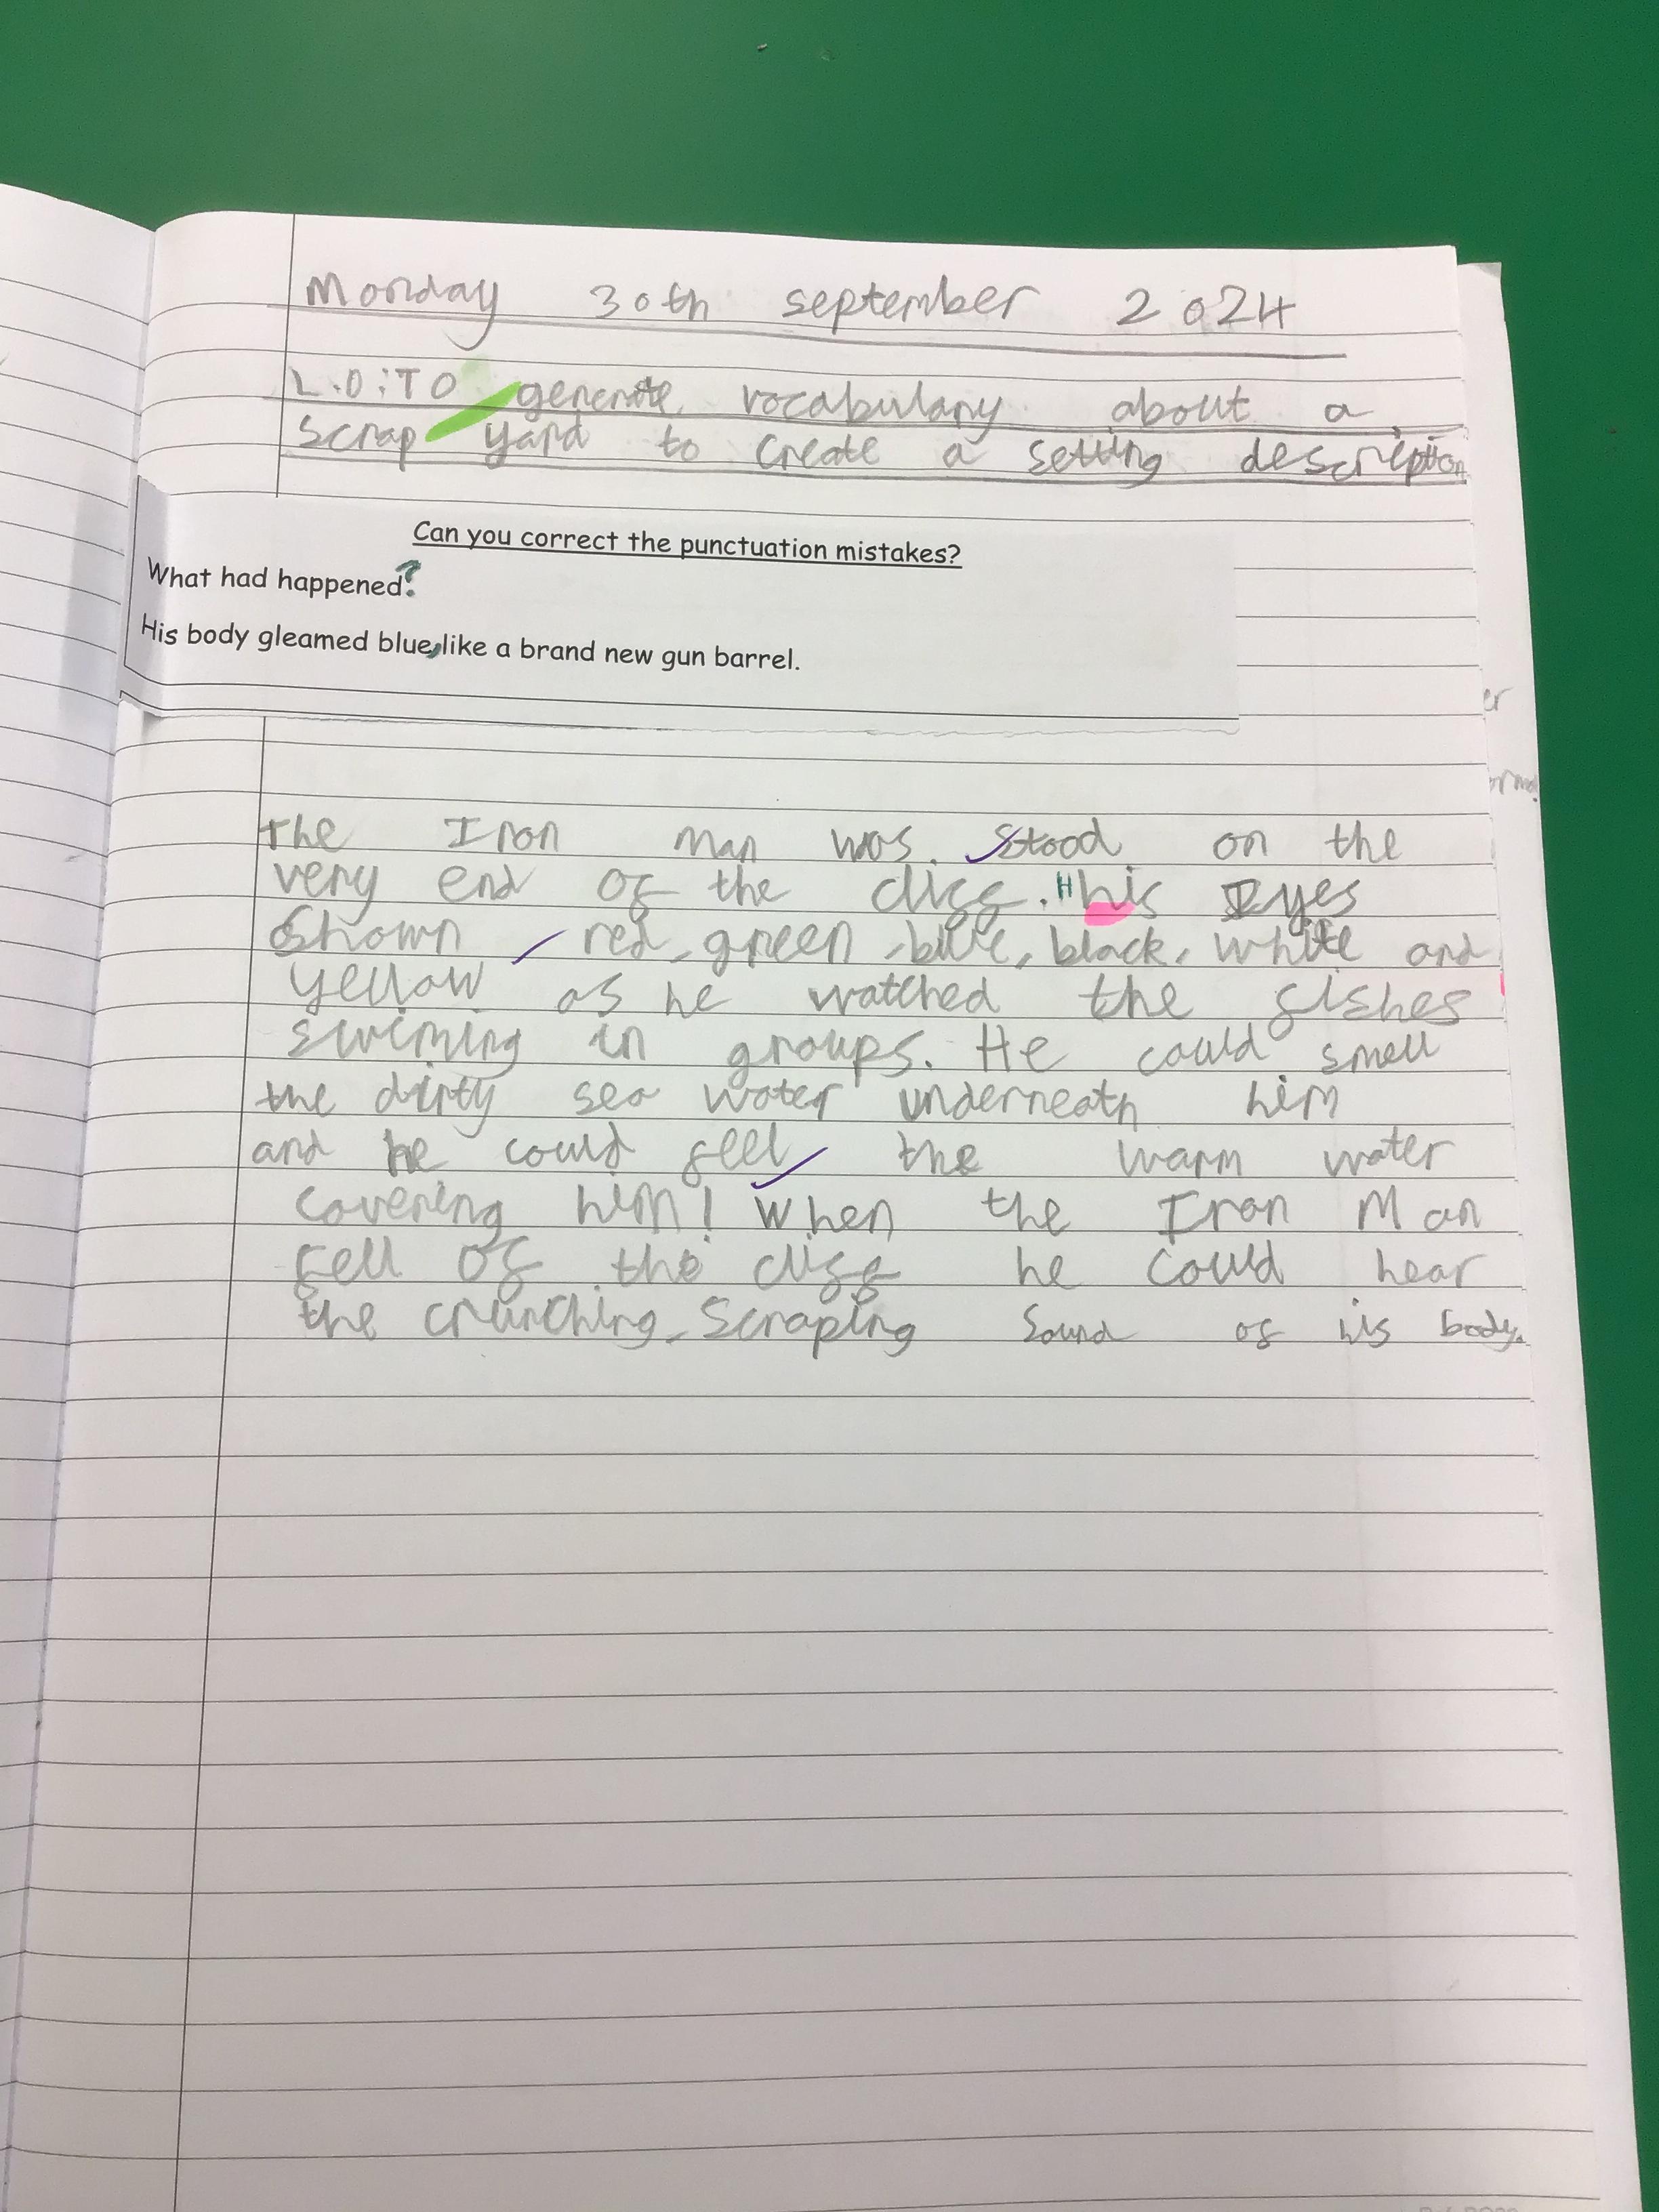 Monday 30th september 2024
L.O:TO generate vocabulary about a
scrap yard to create a setting description
Can you correct the punctuation mistakes?
What had happened?
His body gleamed blue, like a brand new gun barrel.
The Iron Man was stood on the
very end of the cliff. His Eyes
Shown red, green, blue, black, white and
yellow as he watched the fishes
swiming in groups. He could smell
the dirty sea water underneath him
and he could feel the warm water
covering him! When the Iron Man
fell of the cliff he could hear
the crunching, scraping sound of his body.
er